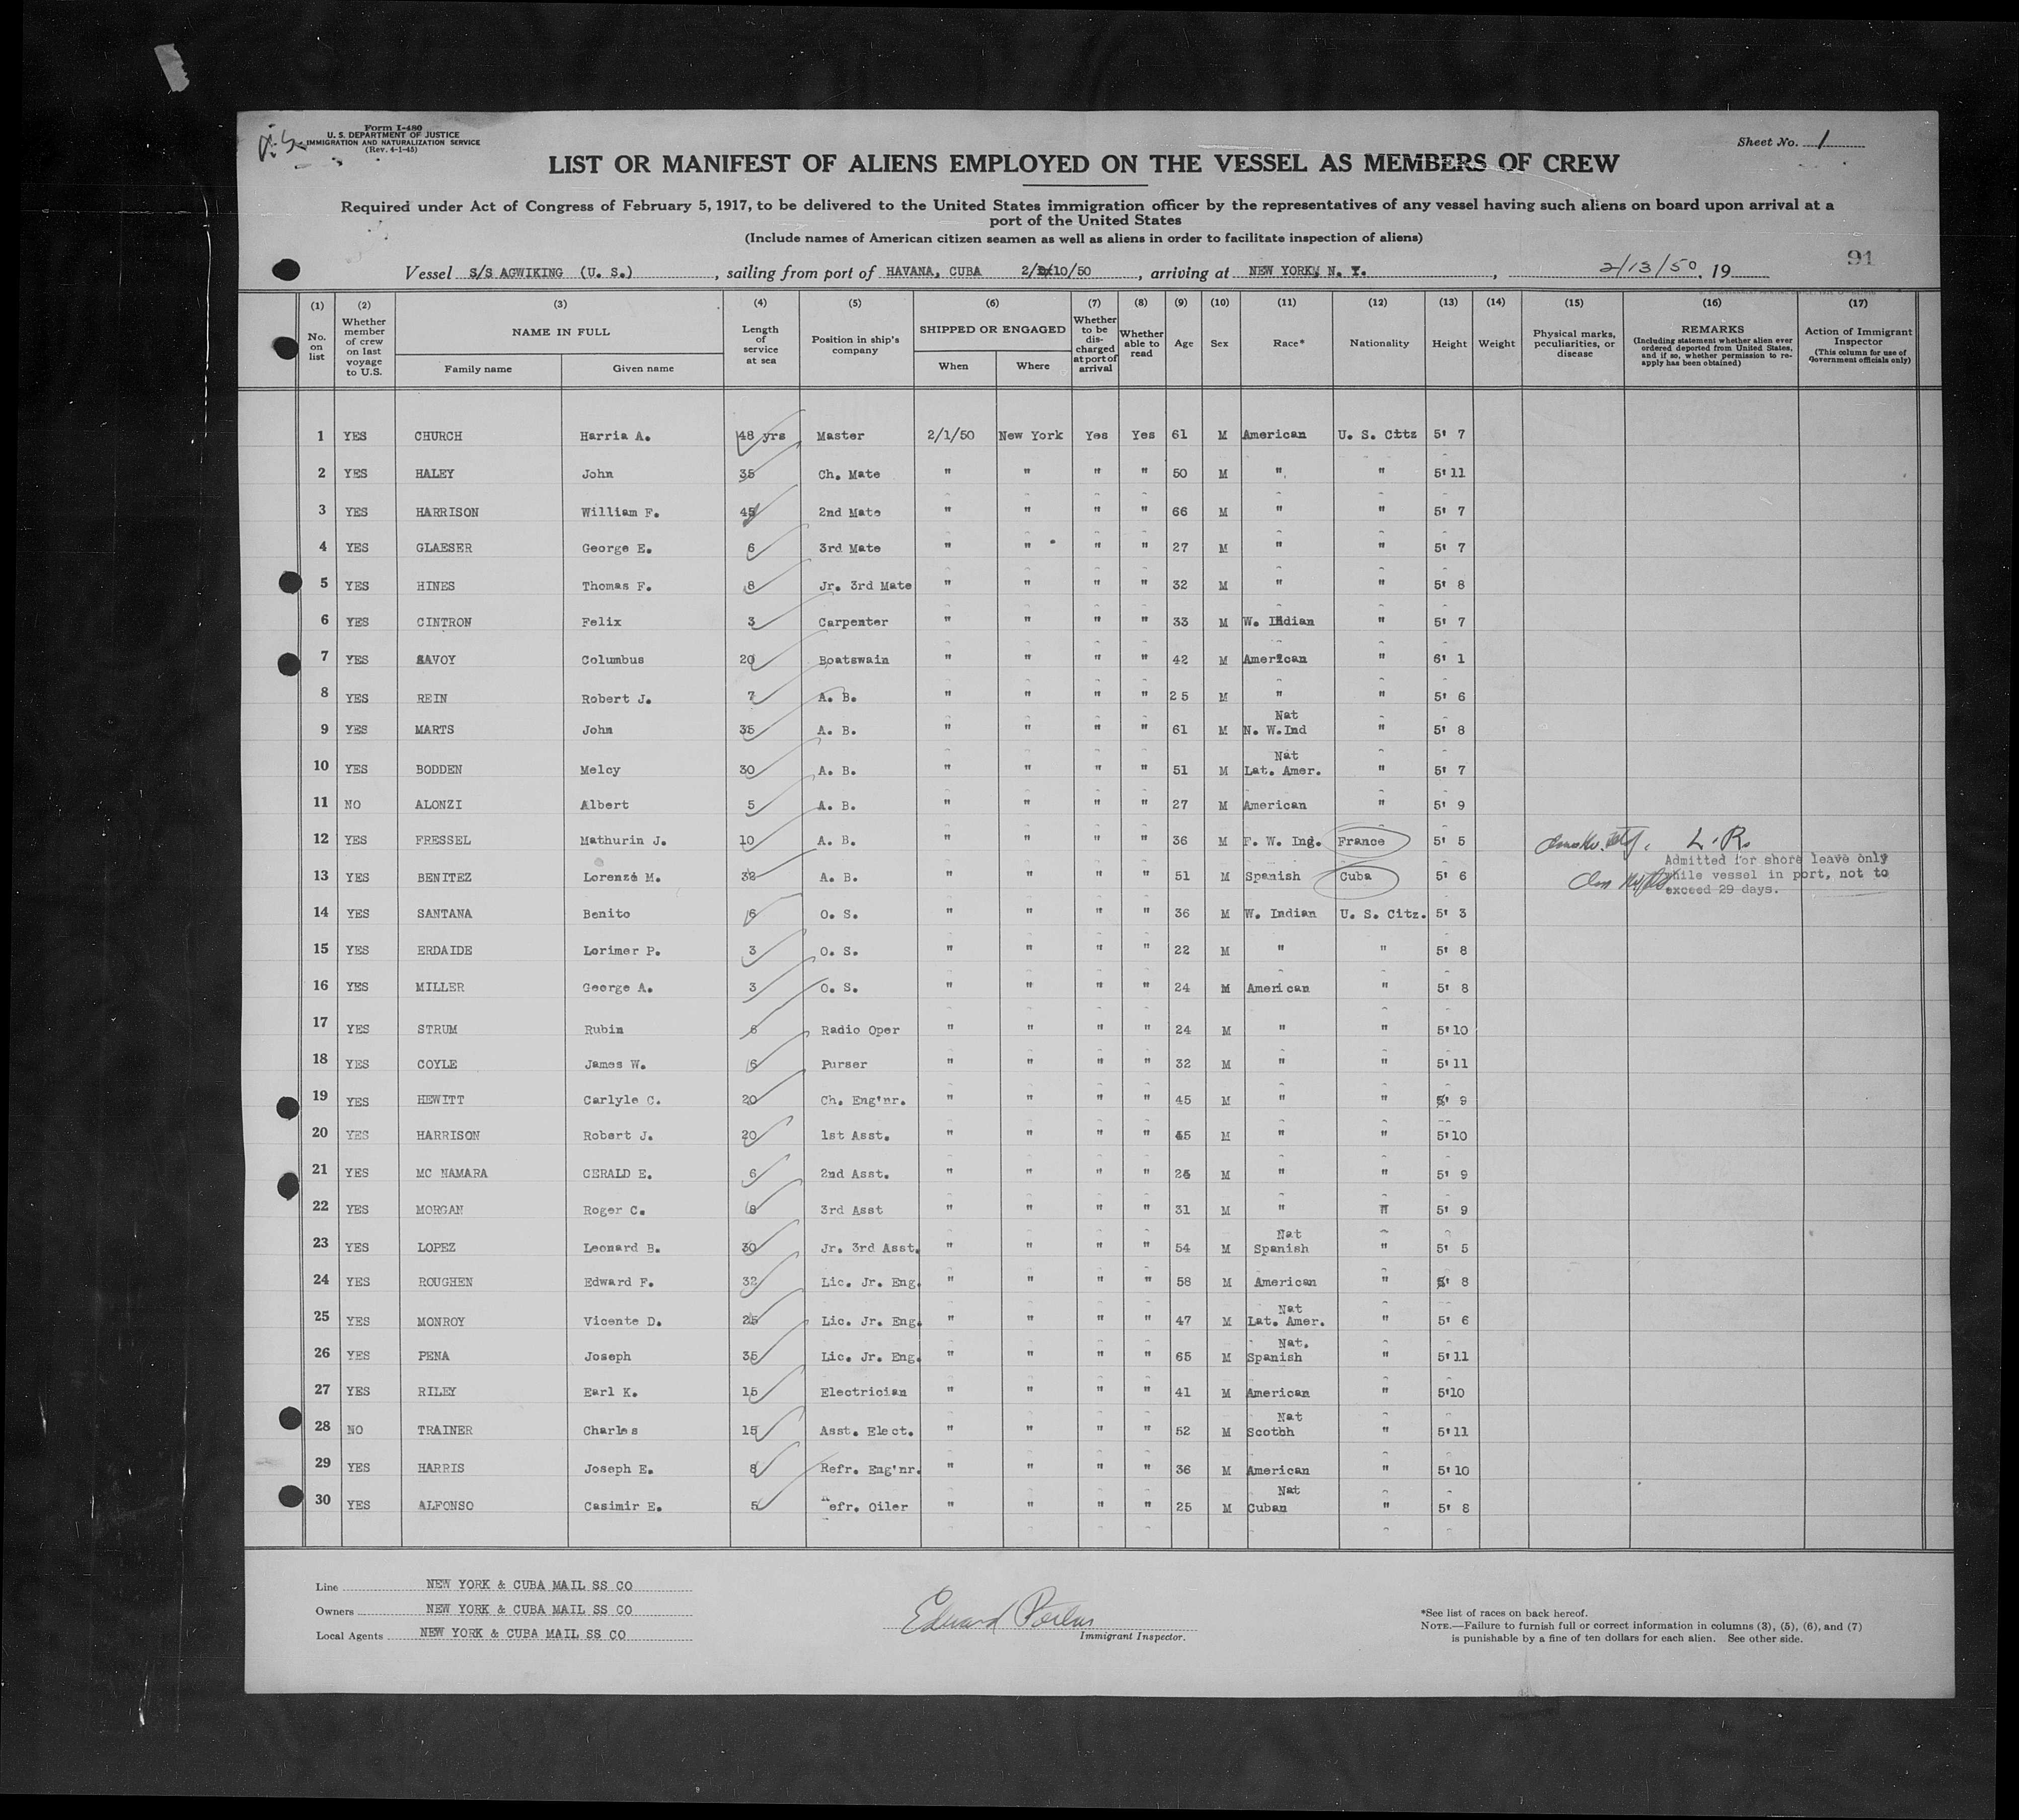 Form I-480
U. S. DEPARTMENT OF JUSTICE
IMMIGRATION AND NATURALIZATION SERVICE
(Rev. 4-1-45)
Sheet No. 1
LIST OR MANIFEST OF ALIENS EMPLOYED ON THE VESSEL AS MEMBERS OF CREW
Required under Act of Congress of February 5, 1917, to be delivered to the United States immigration officer by the representatives of any vessel having such aliens on board upon arrival at a
port of the United States
(Include names of American citizen seamen as well as aliens in order to facilitate inspection of aliens)
91
Vessel S/S AGWIKING (U. S.), sailing from port of HAVANA, CUBA 2/10/50, arriving at NEW YORK, N. Y., 2/13/50, 19
(1) (2) (3) (4) (5) (6) (7) (8) (9) (10) (11) (12) (13) (14) (15) (16) (17)
No. on list
Whether member of crew on last voyage to U.S.
NAME IN FULL
Family name
Given name
Length of service at sea
Position in ship's company
SHIPPED OR ENGAGED
When
Where
Whether to be discharged at port of arrival
Whether able to read
Age
Sex
Race*
Nationality
Height
Weight
Physical marks, peculiarities, or disease
REMARKS
(Including statement whether alien ever ordered deported from United States, and if so, whether permission to reapply has been obtained)
Action of Immigrant Inspector
(This column for use of Government officials only)
1 YES CHURCH Harria A. 48 yrs Master 2/1/50 New York Yes Yes 61 M American U. S. Citz 5' 7
2 YES HALEY John 35 Ch. Mate " " " " 50 M " " 5' 11
3 YES HARRISON William F. 45 2nd Mate " " " " 66 M " " 5' 7
4 YES GLAESER George E. 6 3rd Mate " " " " 27 M " " 5' 7
5 YES HINES Thomas F. 8 Jr. 3rd Mate " " " " 32 M " " 5' 8
6 YES CINTRON Felix 3 Carpenter " " " " 33 M W. Indian " 5' 7
7 YES SAVOY Columbus 20 Boatswain " " " " 42 M American " 6' 1
8 YES REIN Robert J. 7 A. B. " " " " 25 M " " 5' 6
9 YES MARTS John 35 A. B. " " " " 61 M Nat N. W.Ind " 5' 8
10 YES BODDEN Melcy 30 A. B. " " " " 51 M Nat Lat. Amer. " 5' 7
11 NO ALONZI Albert 5 A. B. " " " " 27 M American " 5' 9
12 YES FRESSEL Mathurin J. 10 A. B. " " " " 36 M F. W. Ing. France 5' 5 L.R.
Admitted for shore leave only
13 YES BENITEZ Lorenzo M. 32 A. B. " " " " 51 M Spanish Cuba 5' 6 while vessel in port, not to
exceed 29 days.
14 YES SANTANA Benito 6 O. S. " " " " 36 M W. Indian U. S. Citz. 5' 3
15 YES ERDAIDE Lorimer P. 3 O. S. " " " " 22 M " " 5' 8
16 YES MILLER George A. 3 O. S. " " " " 24 M American " 5' 8
17 YES STRUM Rubin 6 Radio Oper " " " " 24 M " " 5' 10
18 YES COYLE James W. 6 Purser " " " " 32 M " " 5' 11
19 YES HEWITT Carlyle C. 20 Ch. Eng'nr. " " " " 45 M " " 5' 9
20 YES HARRISON Robert J. 20 1st Asst. " " " " M " " 5' 10
21 YES MC NAMARA GERALD E. 6 2nd Asst. " " " " M " " 5' 9
22 YES MORGAN Roger C. 8 3rd Asst " " " " 31 M " " 5' 9
23 YES LOPEZ Leonard B. 30 Jr. 3rd Asst. " " " " 54 M Nat Spanish " 5' 5
24 YES ROUGHEN Edward F. 32 Lic. Jr. Eng. " " " " 58 M American " 5' 8
25 YES MONROY Vicente D. 25 Lic. Jr. Eng. " " " " 47 M Nat Lat. Amer. " 5' 6
26 YES PENA Joseph 35 Lic. Jr. Eng. " " " " 65 M Nat. Spanish " 5' 11
27 YES RILEY Earl K. 15 Electrician " " " " 41 M American " 5' 10
28 NO TRAINER Charles 15 Asst. Elect. " " " " 52 M Nat Scotbh " 5' 11
29 YES HARRIS Joseph E. 8 Refr. Eng'nr. " " " " 36 M American " 5' 10
30 YES ALFONSO Casimir E. 5 Refr. Oiler " " " " 25 M Nat Cuban " 5' 8
Line NEW YORK & CUBA MAIL SS CO
Owners NEW YORK & CUBA MAIL SS CO
Local Agents NEW YORK & CUBA MAIL SS CO
Edward
Immigrant Inspector.
*See list of races on back hereof.
NOTE.—Failure to furnish full or correct information in columns (3), (5), (6), and (7)
is punishable by a fine of ten dollars for each alien. See other side.